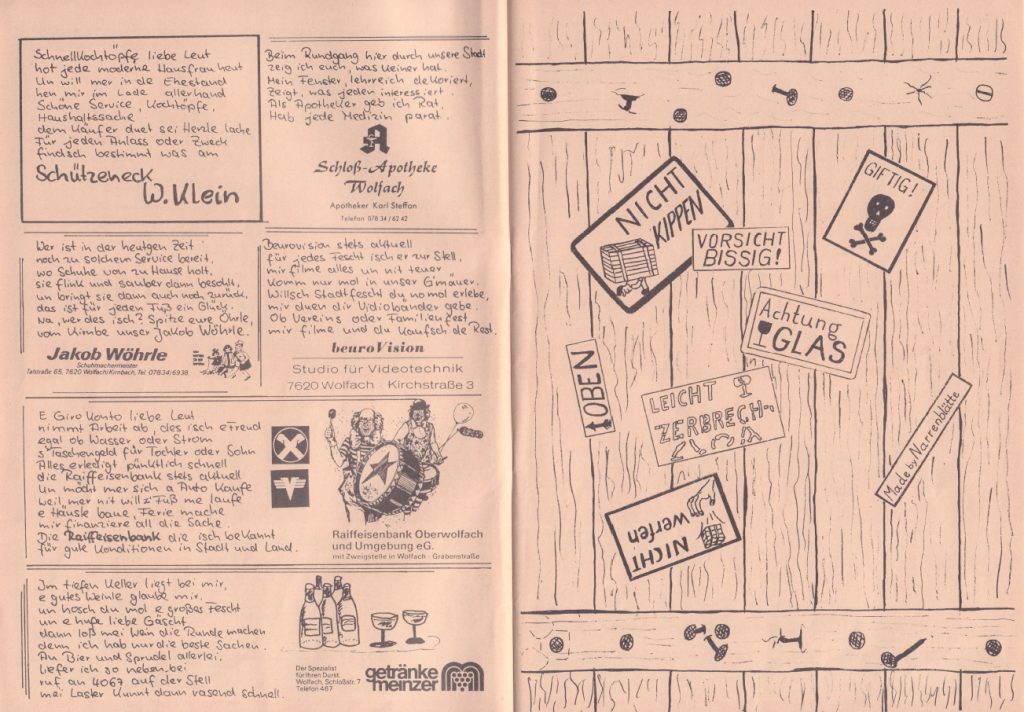 Schnellkochtöpfe liebe Leut
hot jede moderne Hausfrau heut
Un will mer in de Ehestand
hen mir im Lade allerhand
Schöne Service, Kochtöpfe,
Haushaltssache
dem Käufer duet sei Herzle lache
Für jeden Anlass oder Zweck
findsch bestimmt was am
Schützeneck
W. Klein
Beim Rundgang hier durch unsere Stadt
zeig ich euch, was keiner hat.
Mein Fenster, lehrreich dekoriert,
zeigt, was jeden interessiert.
Als Apotheker geb ich Rat,
Hab jede Medizin parat.
Schloß-Apotheke
Wolfach
Apotheker Karl Steffan
Telefon 078 34 / 62 42
Wer ist in der heutgen Zeit
noch zu solchem Service bereit,
wo Schuhe von zu Hause holt,
sie flink und sauber dann besohlt,
un bringt sie dann auch noch zurück,
das ist für jeden Fuß ein Glück.
Na, wer des isch? Spitz eure Öhrle,
vom Kirnbe unser Jakob Wöhrle.
Jakob Wöhrle
Schuhmachermeister
Talstraße 65, 7620 Wolfach/Kirnbach, Tel. 07834/6938
Beurovision stets aktuell
für jedes Fescht isch er zur Stell,
mir filme alles un nit teuer
Komm nur mol in unser G'mäuer.
Willsch Stadtfescht du nomol erlebe,
mir duen die Vidiobänder gebe.
Ob Vereins oder Familienfest
mir filme und du kaufsch de Rest.
beuroVision
Studio für Videotechnik
7620 Wolfach - Kirchstraße 3
E Giro Konto liebe Leut
nimmt Arbeit ab, des isch e Freud
egal ob Wasser oder Strom
s'Taschengeld für Tochter oder Sohn
Alles erledigt pünktlich schnell
die Raiffeisenbank stets aktuell
Un möcht mer sich a Auto kaufe
weil mer nit will z'Fuß me laufe
e Häusle baue, Ferie mache
mir finanziere all die Sache.
Die Raiffeisenbank die isch bekannt
für gute Konditionen in Stadt und Land.
Raiffeisenbank Oberwolfach
und Umgebung eG.
mit Zweigstelle in Wolfach · Grabenstraße
Im tiefen Keller liegt bei mir,
e gutes Weinle glaube mir,
un hosch du mol e großes Fescht
un e hufe liebe Gäscht
dann loß mei Wein die Runde machen
denn ich hab nur die beste Sachen.
An Bier und Sprudel allerlei,
liefer ich so nebenbei
ruf an 4067 auf der Stell
mei Laster kunnt dann rasend schnell.
Der Spezialist
für Ihren Durst
Wolfach, Schloßstr. 7
Telefon 467
getränke
meinzer
NICHT
KIPPEN
VORSICHT
BISSIG!
GIFTIG!
Achtung
GLAS
OBEN
LEICHT
ZERBRECH-
Made by Narrenblättle
NICHT
werfen